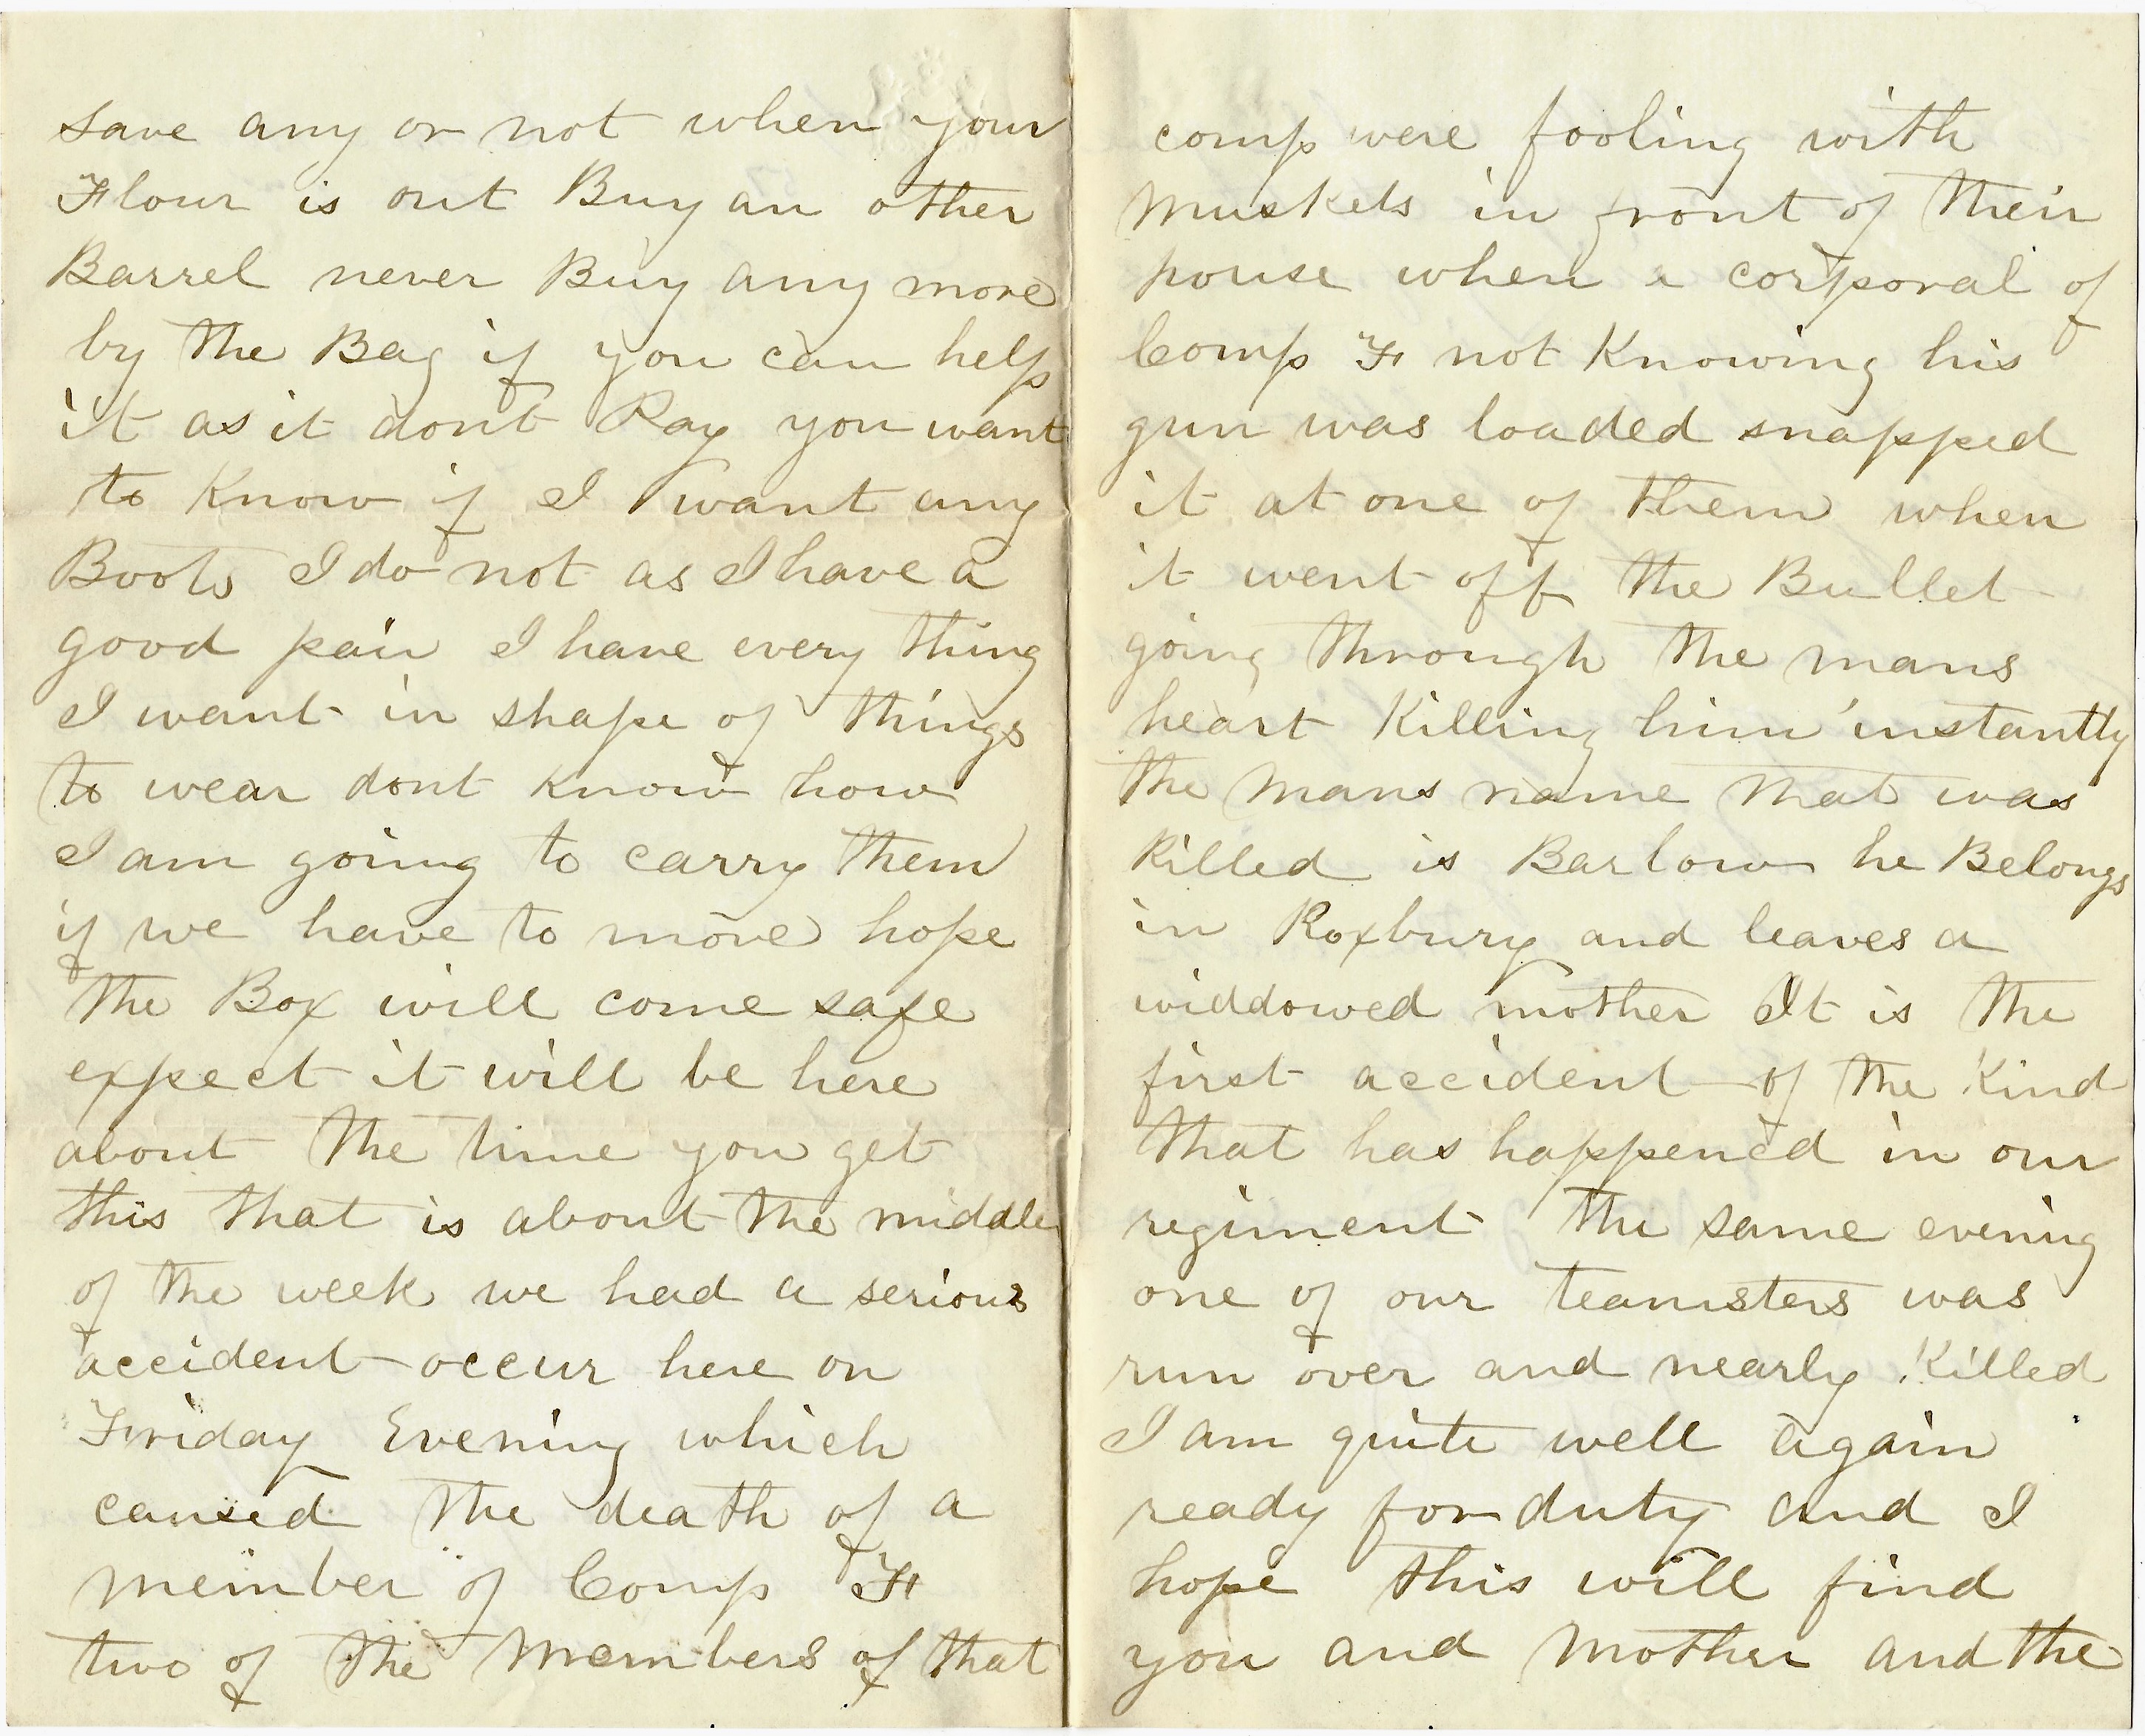 save any or not when your
Flour is out Buy an other
Barrel never Buy any more
by the Bag if you can help
it as it dont Pay you want
to Know if I want any
Boots I do not as I have a
good pair I have every thing
I want in shape of things
to wear dont know how
I am going to carry them
if we have to move hope
the Box will come safe
expect it will be here
about the time you get
this that is about the middle
of the week we had a serious
accident occur here on
Friday Evening which
caused the death of a
member of Comp F
two of the Members of that
comp were fooling with
Muskets in front of their
house when a corporal of
Comp F not Knowing his
gun was loaded snapped
it at one of them when
it went off the Bullet
going through the mans
heart Killing him instantly
the mans name that was
Killed is Barlow he Belongs
in Roxbury and leaves a
widdowed mother It is the
first accident of the Kind
that has happened in our
regiment the same evening
one of our teamsters was
run over and nearly Killed
I am quite well again
ready for duty and I
hope this will find
you and Mother and the